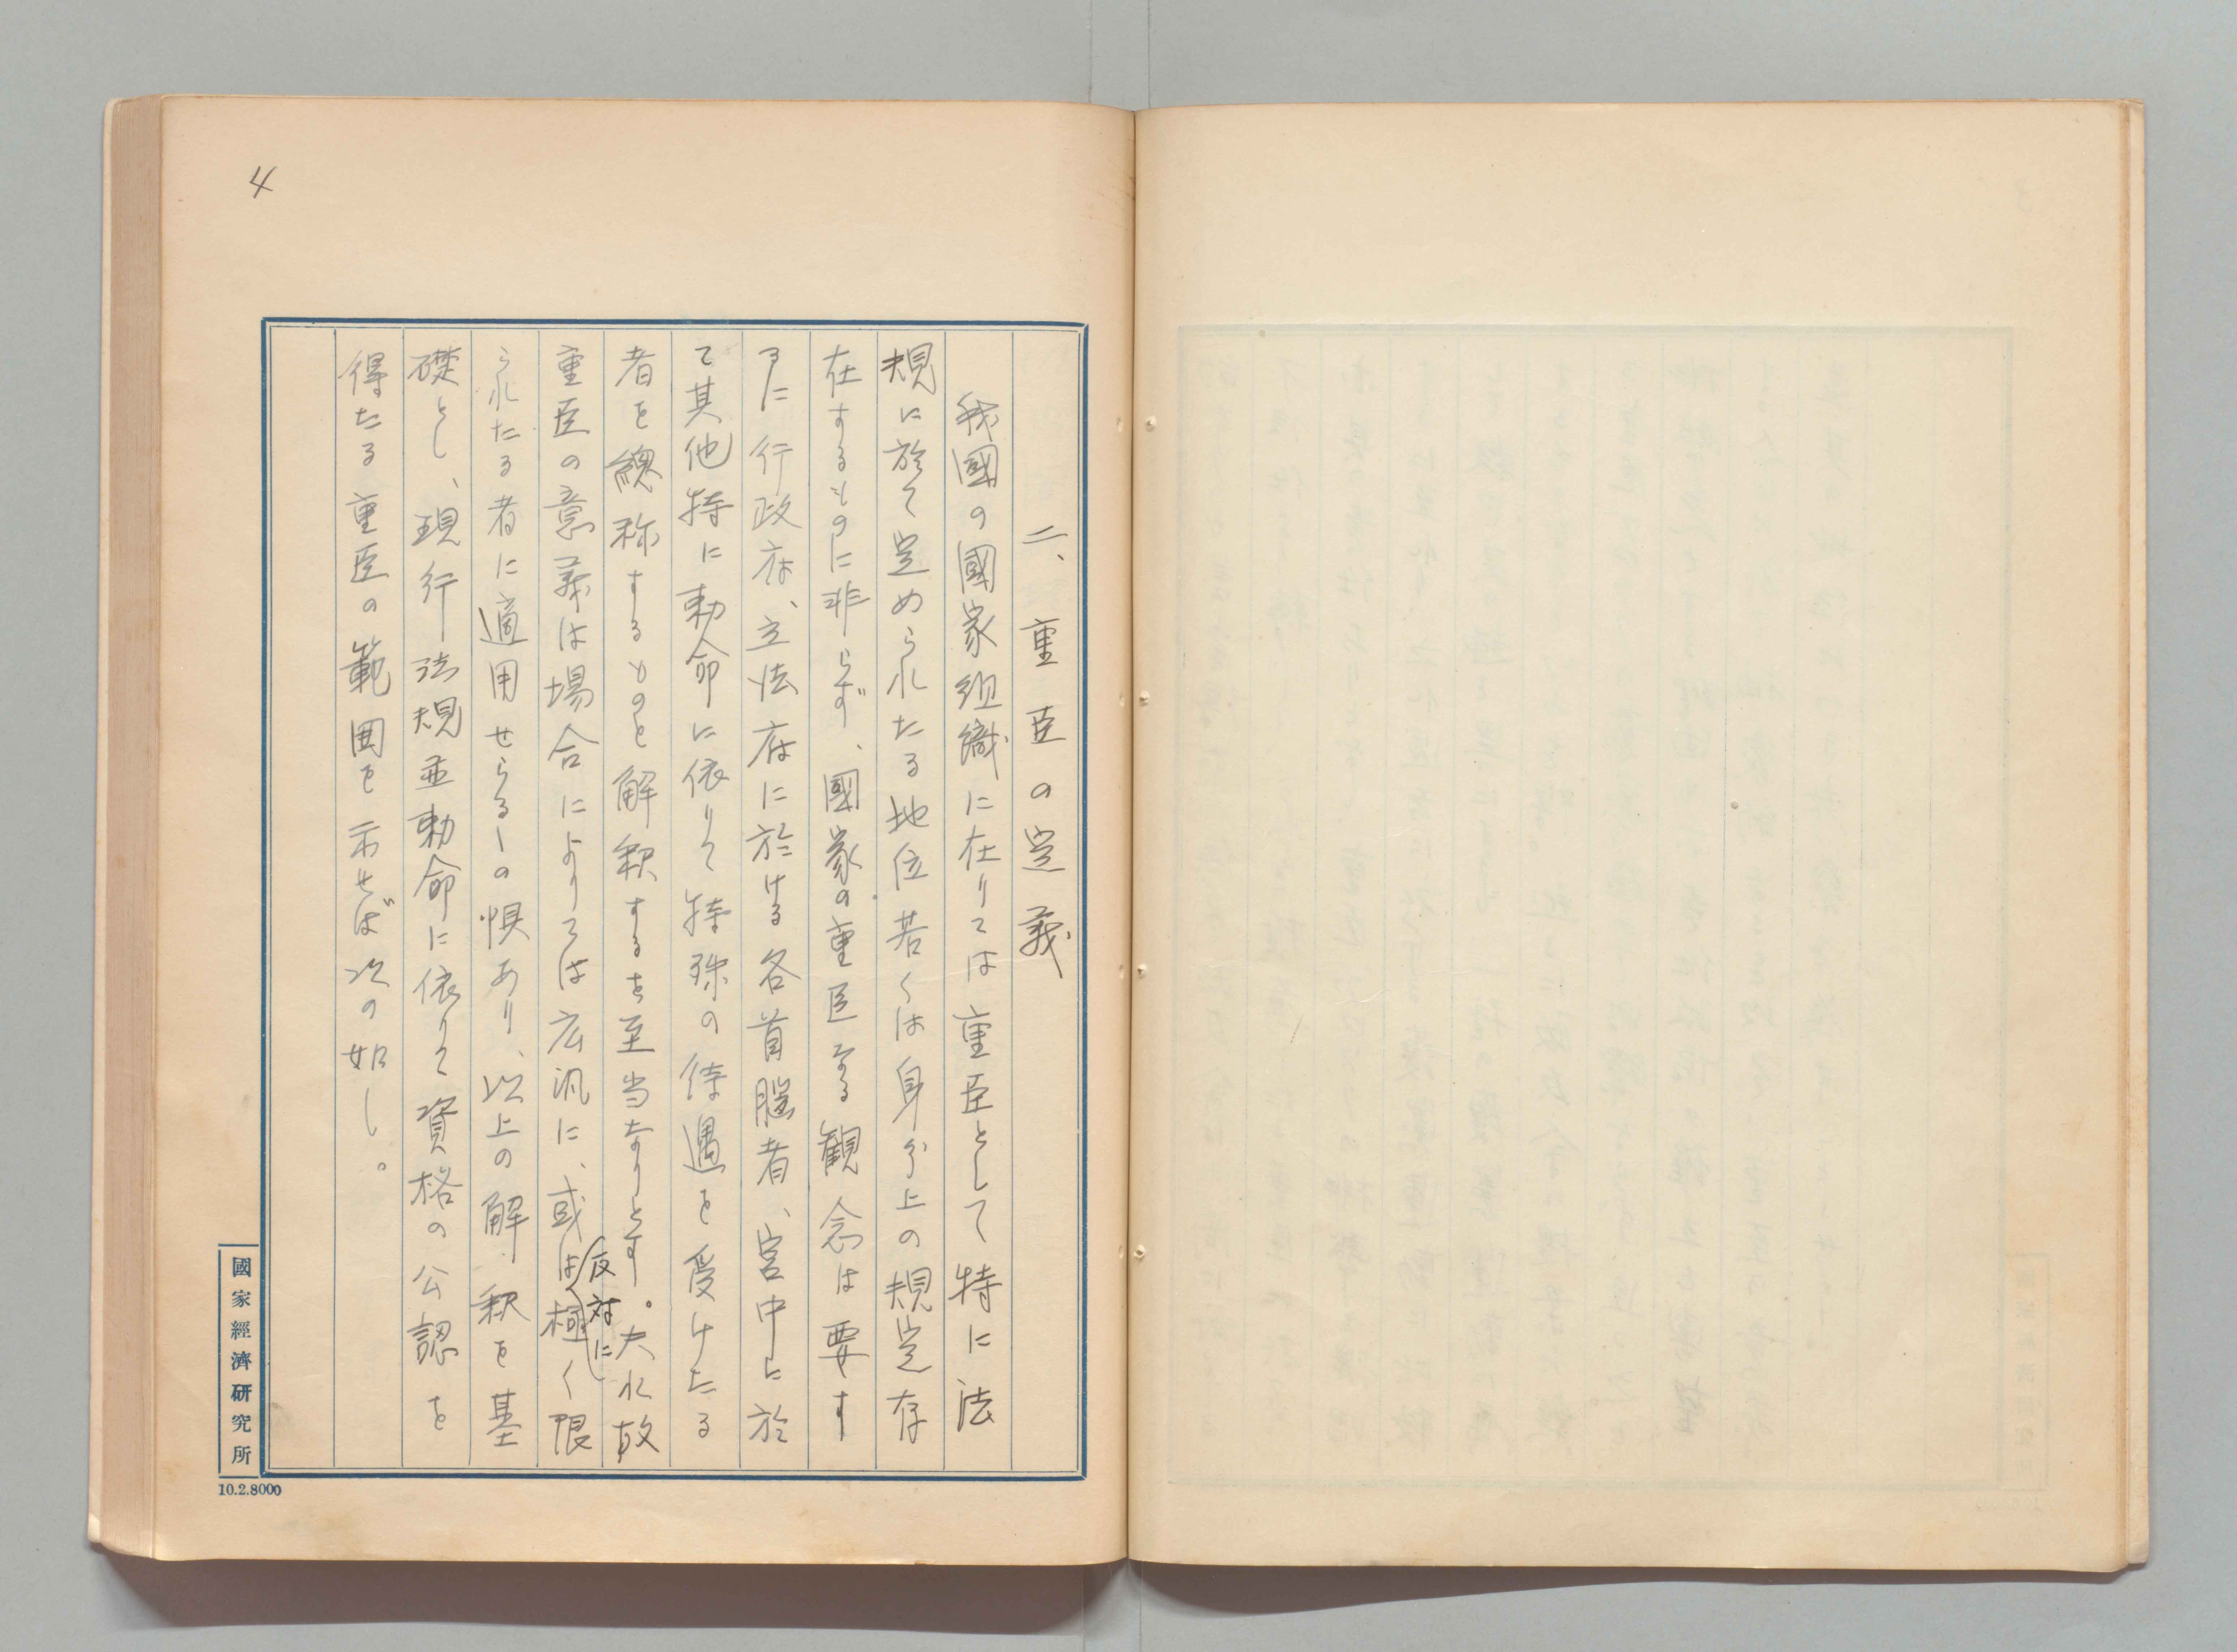 4
二、重臣の定義
我國の國家組織に在りては重臣として特に法
規に於て定められたる地位若くは身分上の規定存
在するものに非らず、國家の重臣なる観念は要す
るに行政府、立法府に於ける各首脳者、宮中に於
て其他特に勅命に依りて特殊の待遇を受けたる
者を總称するものと解釈するを至当なりとす。夫れ故
重臣の意義は場合によりては広汎に、或は反対に極く限
られたる者に適用せらるゝの惧あり、以上の解釈を基
礎とし、現行法規並勅命に依りて資格の公認を
得たる重臣の範囲を示せば次の如し。
國家經濟研究所
10.2.8000